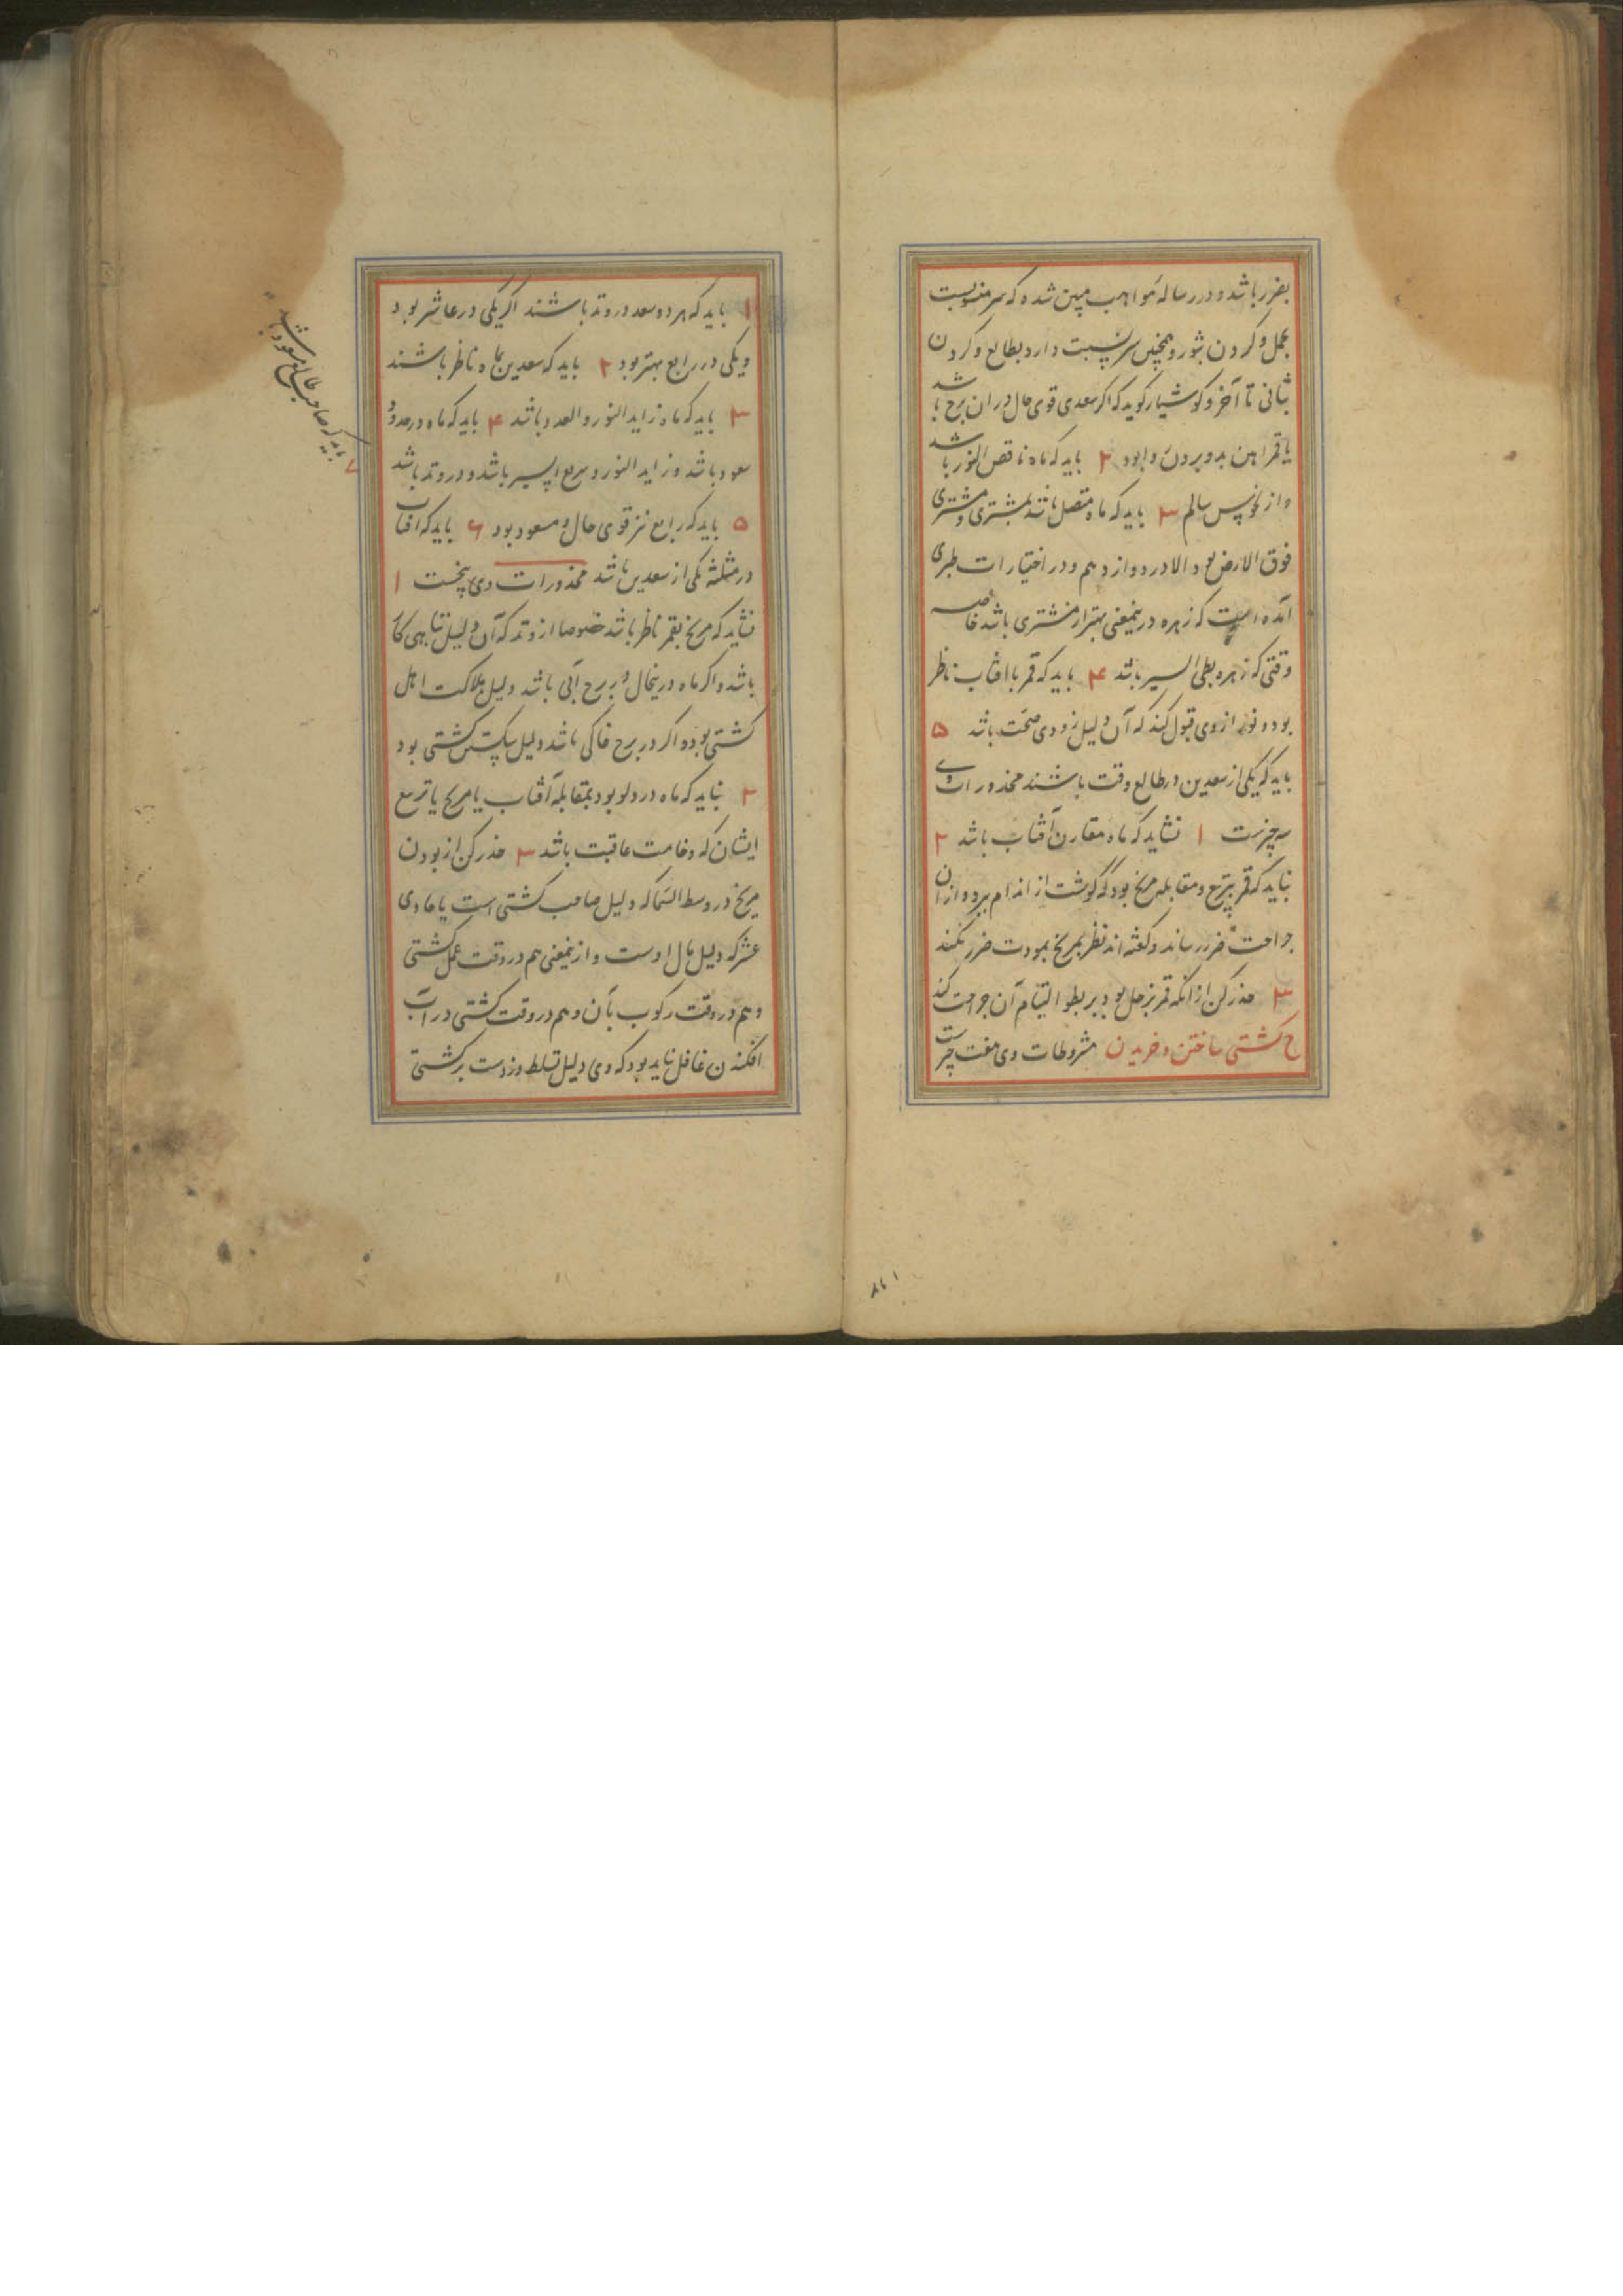 بضرر باشد و در رساله مواهب مبین شده که سر منسوبست
بحمل و گردن بثور و همچنین سر نسبت دارد بطالع و گردن
بثانی تا آخر و کوشیار گوید که اگر سعدی قوی حال در ان برج باشد
یا قمر آهن بدو بردن روا بود ۲ باید که ماه ناقص النور باشد
و از نحوس سالم ۳ باید که ماه متصل باشد بمشتری و مشتری
فوق الارض بود الا در دوازدهم و در اختیارات طبری
آمده است که زهره درینمعنی بهتر از مشتری باشد خاصه
وقتی که زهره بطی السیر باشد ۴ باید که قمر بافتاب ناظر
بود و نور از وی قبول کند که آن دلیل زودی صحت باشد ۵
باید که یکی از سعدین در طالع وقت باشند محذورات وی
سه چیزست ۱ نشاید که ماه مقارن آفتاب باشد ۲
نباید که قمر بتربیع و مقابله مریخ بود که گوشت از اندام ببرد و از ان
جراحت ضرر رساند و گفته اند نظر بمریخ بمودت ضرر نکند
۳ حذر کن از آنکه قمر بزحل بود بر بطوء التیام آن جراحت کند
ح کشتی ساختن و خریدن مشروطات وی هفت چیزست
۱ باید که هر دو سعد در وتد باشند اگر یکی در عاشر بود
و یکی در رابع بهتر بود ۲ باید که سعدین بماه ناظر باشند
۳ باید که ماه زاید النور و العدد باشد ۴ باید که ماه در حدود
سعود باشد و زاید النور و سریع السیر باشد و در وتد باشد
۵ باید که رابع نیز قوی حال و مسعود بود ۶ باید که آفتاب
در مثلثه یکی از سعدین باشد محذورات وی پنجست ۱
نشاید که مریخ بقمر ناظر باشد خصوصا از وتد که آن دلیل تباهی کار
باشد و اگر ماه درینحال در برج آبی باشد دلیل هلاکت اهل
کشتی بود و اگر در برج خاکی باشد دلیل شکستن کشتی بود
۲ نباید که ماه در دلو بود بمقابله آفتاب یا مریخ یا تربیع
ایشان که وخامت عاقبت باشد ۳ حذر کن از بودن
مریخ در وسط السما که دلیل صاحب کشتی است یا حادی
عشر که دلیل مال اوست و ازینمعنی هم در وقت عمل کشتی
و هم در وقت رکوب بآن و هم در وقت کشتی در آب
افکندن غافل نباید بود که وی دلیل تسلط دزدست بر کشتی
۷ باید که صاحب طالع مسعود باشد